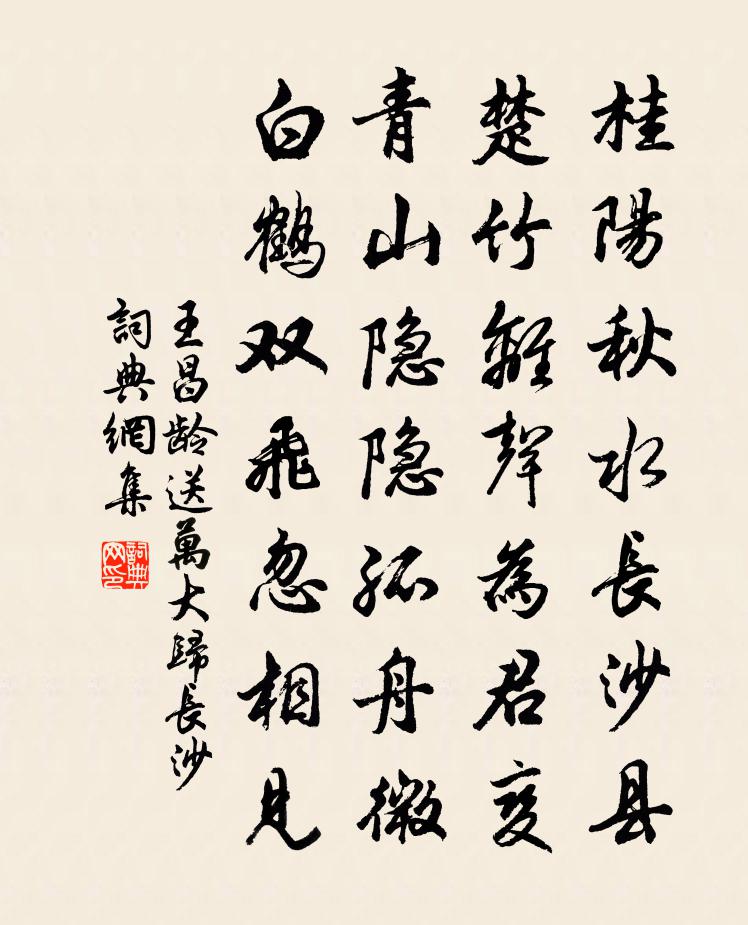 桂陽秋水長沙县
楚竹離聲為君变
青山隐隐孤舟微
白鶴双飛忽相見
王昌龄送萬大歸長沙
詞典網集
詞典网印